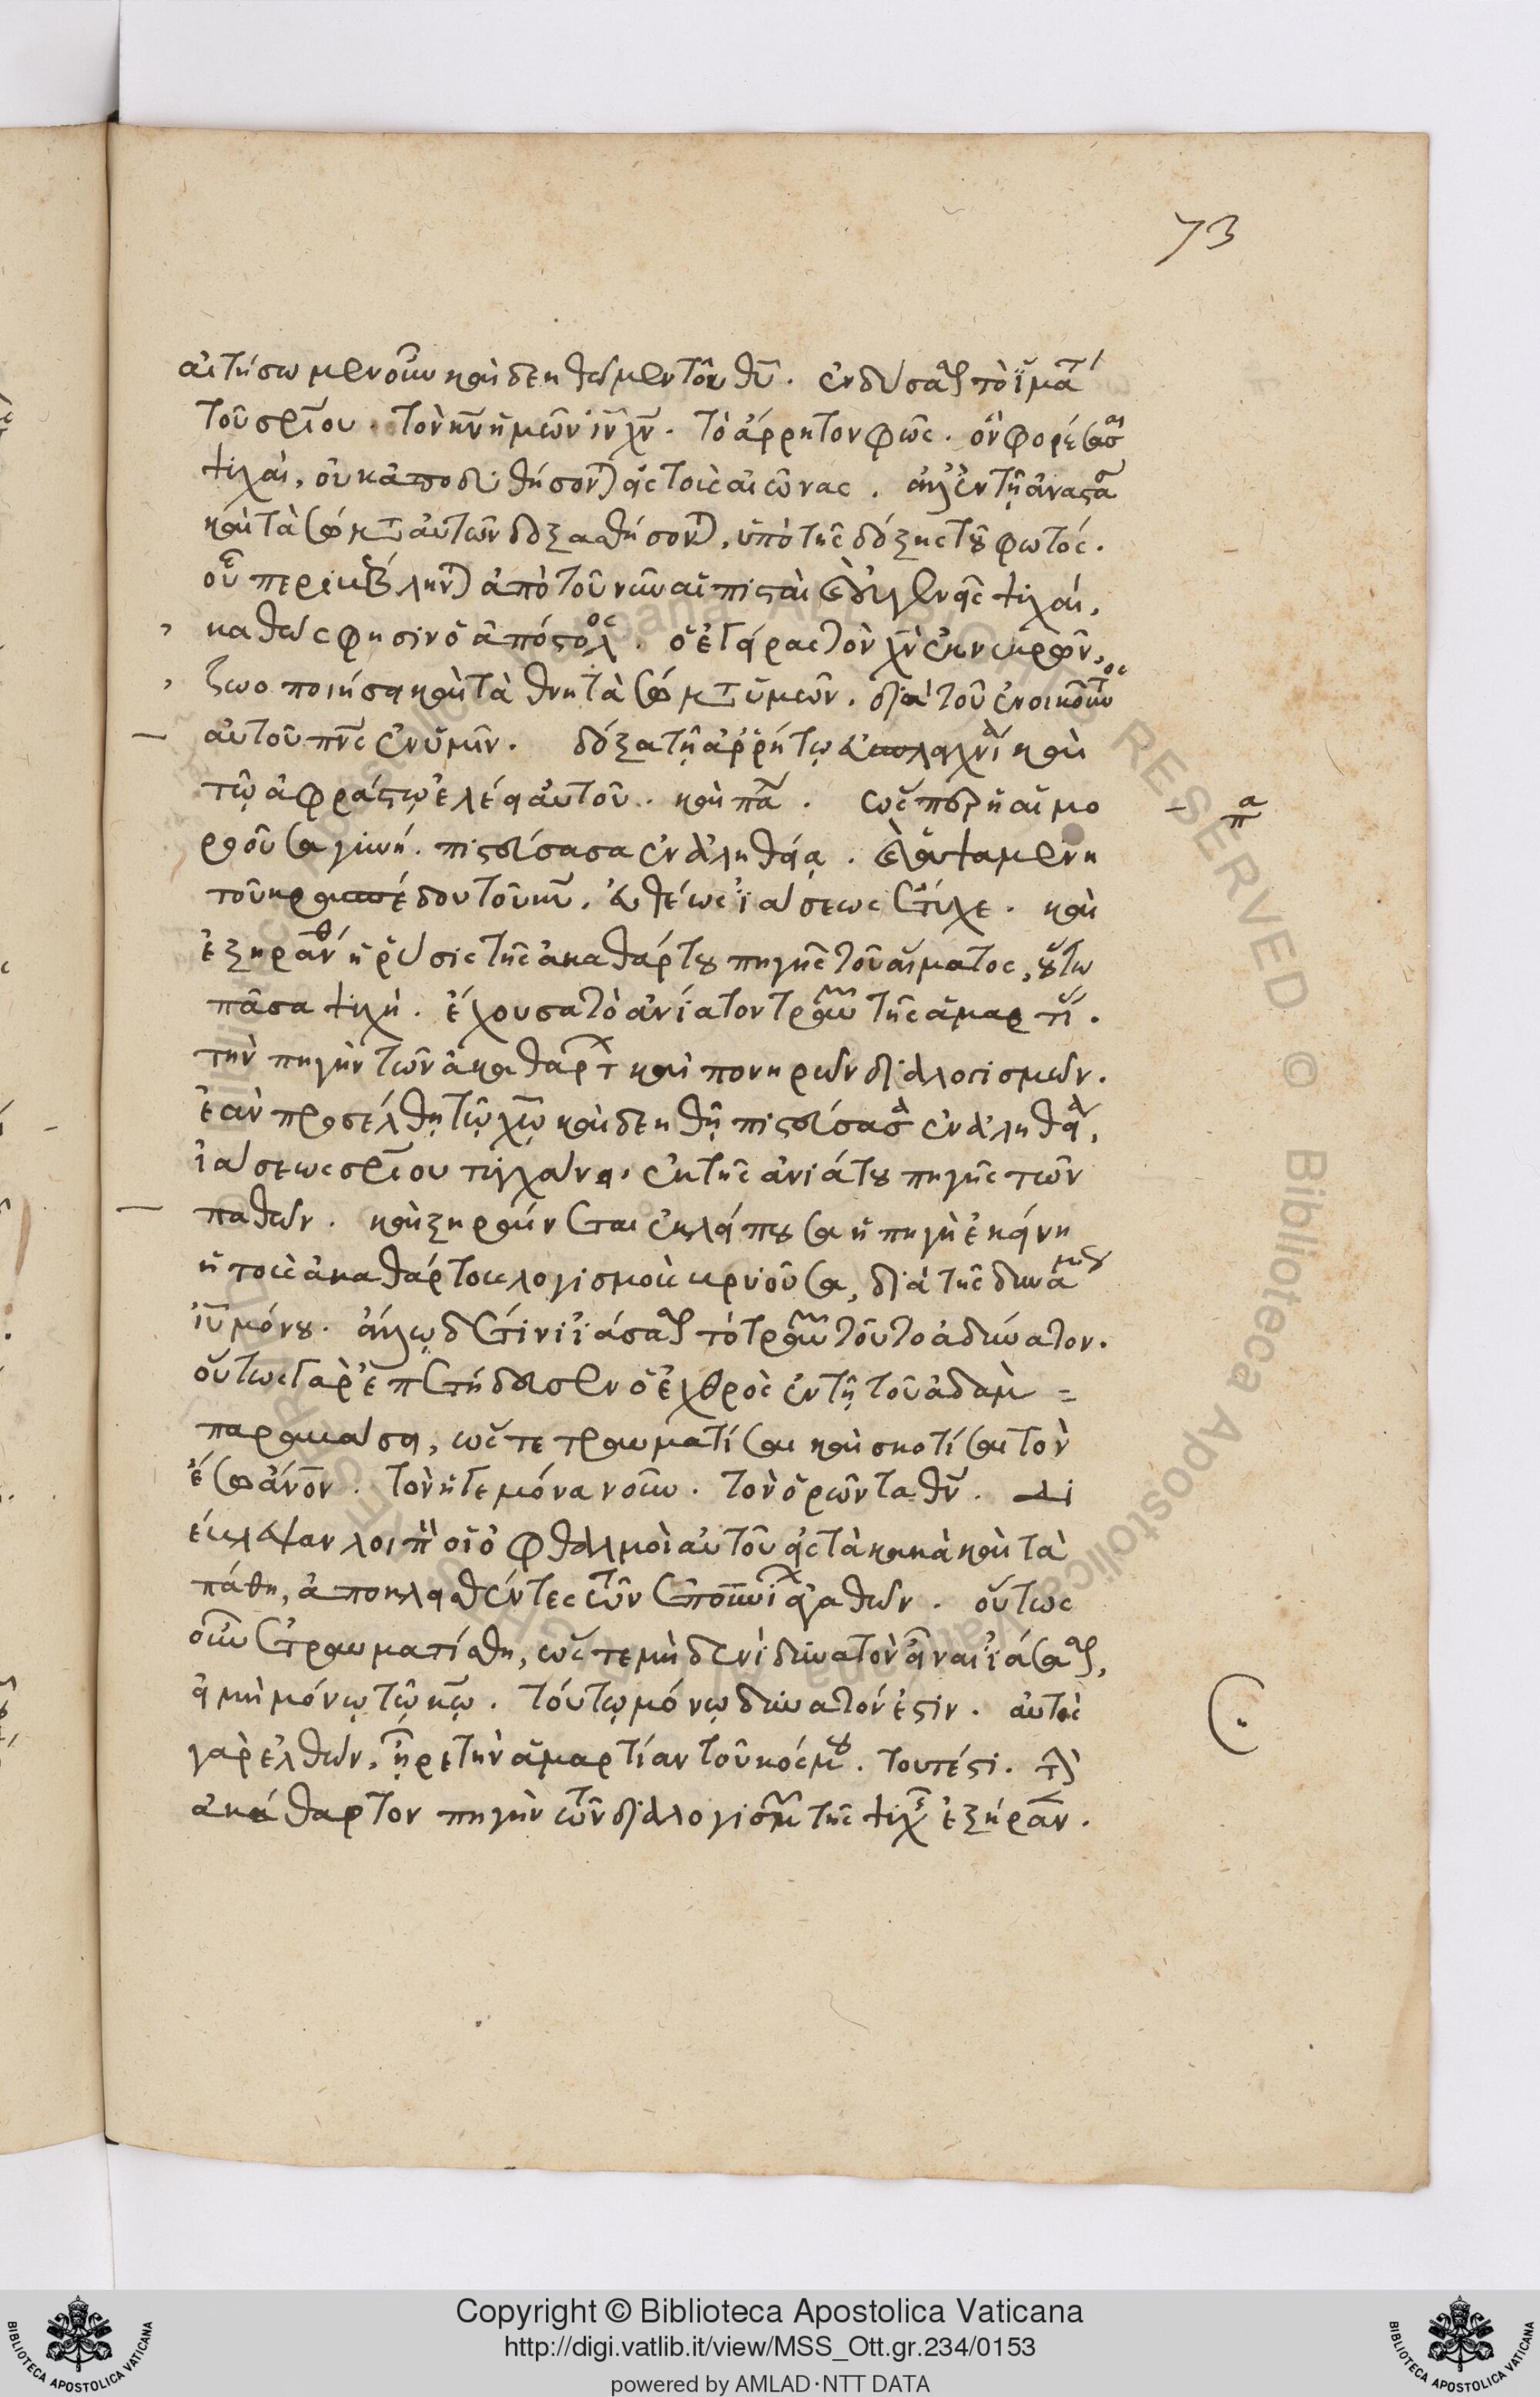 73
αἰτήσωμεν οὖν καὶ δεηθῶμεν τοῦ θῦ. ἐνδῦσαι τὸ ἱμάτι
τοῦ σρίου. τὸν κν ἡμῶν ἰν χν. τὸ ἄρρητον φῶς. ὃν φορέσασαι
ψυχαὶ, οὐκ ἀποδυθήσονται εἰς τοὺς αἰῶνας. ἀλλ' ἐν τῇ ἀναστά
καὶ τὰ σώματα αὐτῶν δοξασθήσονται, ὑπὸ τῆς δόξης τοῦ φωτός.
οὗ περιβέβληνται ἀπὸ τοῦ νῦν αἱ πισταὶ καὶ εὐγενεῖς ψυχαί,
καθώς φησιν ὁ ἀπόστολος. ὁ ἐγείρας τὸν χν ἐκ νεκρῶν,
ζωοποιήσει καὶ τὰ θνητὰ σώματα ὑμῶν. διὰ τοῦ ἐνοικοῦντος
αὐτοῦ πνς ἐν ὑμῖν. δόξα τῇ ἀρρήτῳ εὐσπλαγχνίᾳ καὶ
τῷ ἀφράστῳ ἐλέει αὐτοῦ. καὶ πα. ὥσπερ ἡ αἱμο
ροοῦσα γυνή. πιστεύσασα ἐν ἀληθείᾳ. καὶ ἁψαμένη
τοῦ κρασπέδου τοῦ κυ. εὐθέως ἰάσεως ἔτυχε. καὶ
ἐξηράνθη ἡ ῥύσις τῆς ἀκαθάρτου πηγῆς τοῦ αἵματος, οὕτω
πᾶσα ψυχὴ. ἔχουσα τὸ ἀνίατον τραῦμα τῆς ἁμαρτί.
τὴν πηγὴν τῶν ἀκαθάρτ καὶ πονηρῶν διαλογισμῶν.
ἐὰν προσέλθῃ τῷ χω καὶ δεηθῇ πιστεύσασα ἐν ἀληθείᾳ,
ἰάσεως σρίου τυγχάνει, ἐκ τῆς ἀνιάτου πηγῆς τῶν
παθῶν. καὶ ξηραίνεται ἐκλείπουσα ἡ πηγὴ ἐκείνη
ἡ τοὺς ἀκαθάρτους λογισμοὺς κρινοῦσα, διὰ τῆς δυνάμεως
ἰυ μόνου. ἄλλῳ δὲ τινὶ ἰάσασθαι τὸ τραῦμα τοῦτο ἀδύνατον.
οὕτως γὰρ ἐπετήδευσεν ὁ ἐχθρὸς ἐν τῇ τοῦ ἀδαμ =
παραβάσει, ὥστε τραυματίσαι καὶ σκοτίσαι τὸν
ἔσω ἄνον. τὸν ἡγεμόνα νοῦν. τὸν ὁρῶντα θν. Δι
έβλεψαν λοιπὸν οἱ ὀφθαλμοὶ αὐτοῦ εἰς τὰ κακὰ καὶ τὰ
πάθη, ἀποκλεισθέντες τῶν ἐπουνίων ἀγαθῶν. οὕτως
οὖν ἐτραυματίσθη, ὥστε μηδενὶ δυνατὸν εἶναι ἰάσασθαι,
εἰ μὴ μόνῳ τῷ κω. τούτῳ μόνῳ δυνατόν ἐστιν. αὐτὸς
γὰρ ἐλθών. ἦρε τὴν ἁμαρτίαν τοῦ κόσμου. τουτέστι. τὴν
ἀκάθαρτον πηγὴν τῶν διαλογισμῶν τῆς ψυχῆς ἐξήραν.
Copyright © Biblioteca Apostolica Vaticana
http://digi.vatlib.it/view/MSS_Ott.gr.234/0153
powered by AMLAD·NTT DATA